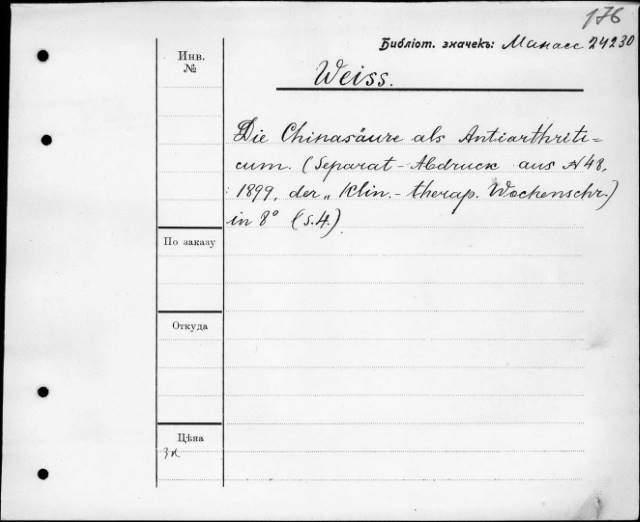 176
Библіот. значекъ: Манасс 24230
Инв.
№
Weiss.
Die Chinasäure als Antiarthriti=
cum. (Separat-Abdruck aus N 48,
1899, der „Klin.-therap. Wochenschr.)
in 8° (S.4.)
По заказу
Откуда
Цѣна